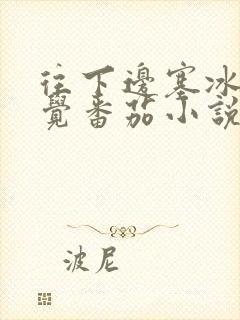 往下邊塞冰
覺番茄小說
波尼